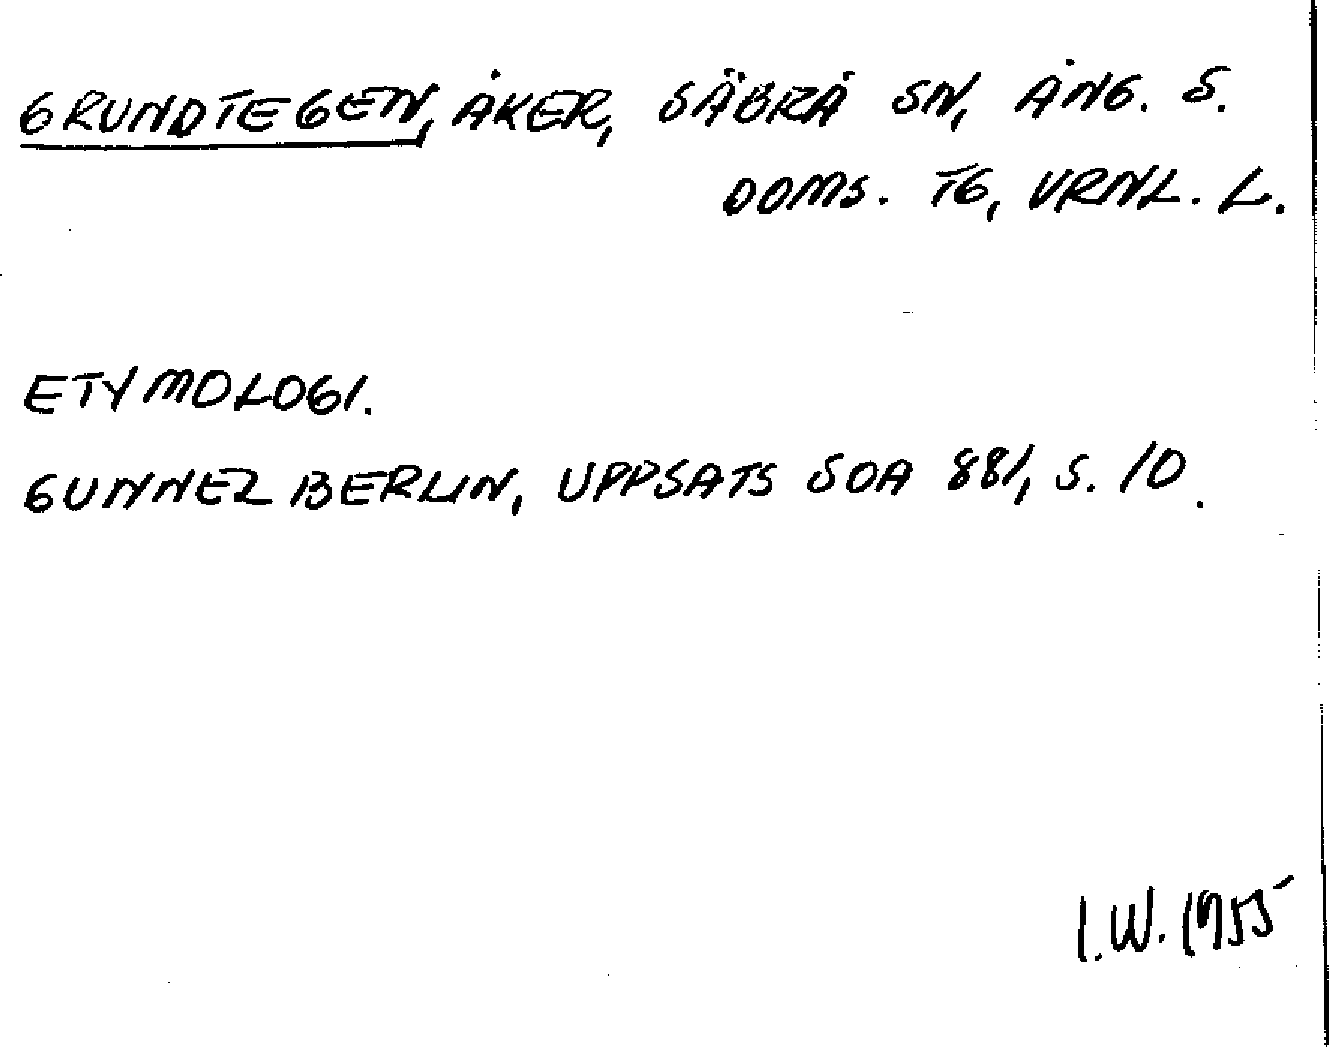 GRUNDTEGEN, ÅKER, SÄBRÅ SN, ÅNG. S.
DOMS. TG, VRNL. L.
ETYMOLOGI.
GUNNEL BERLIN, UPPSATS SOA 881, S. 10.
I.W. 1955